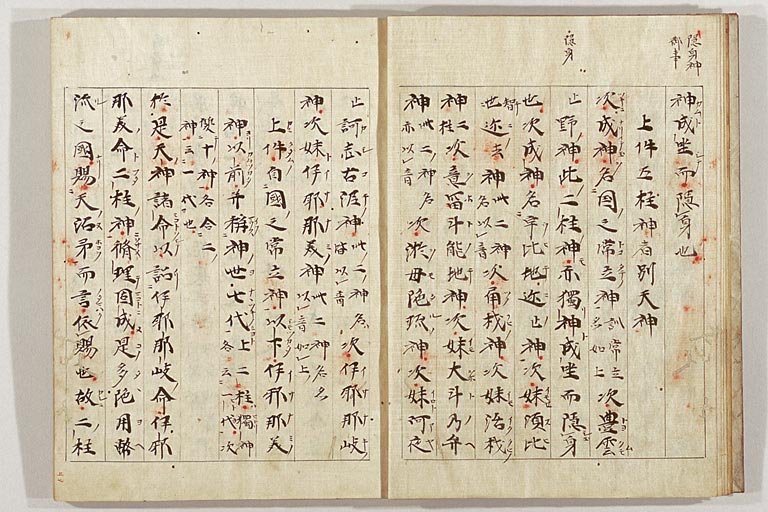 隱身神
御事
隱身
神成坐而隱身也
上件五柱神者別天神
次成神名国之常立神訓常立名如上次豊雲
上野神此二柱神亦獨神成坐而隱身
也次成神名宇比地迩上神次妹須比
智迩去神此二神名以音次角杙神次妹活杙
神二柱次意冨斗能地神次妹大斗乃弁
神此二神名亦以音次淤母陁琉神次妹阿夜
上訶志古泥神此二神名皆以音次伊耶那岐
神次妹伊耶那美神此二神名亦以音如上
上件自國之常立神以下伊耶那美
神以前并稱神世七代上二柱獨神各云一代次
雙十神各合二神云一代也
於是天神諸命以詔伊耶那岐命伊耶
那美命二柱神脩理固成是多陁用幣
流之國賜天沼矛而言依賜也故二柱